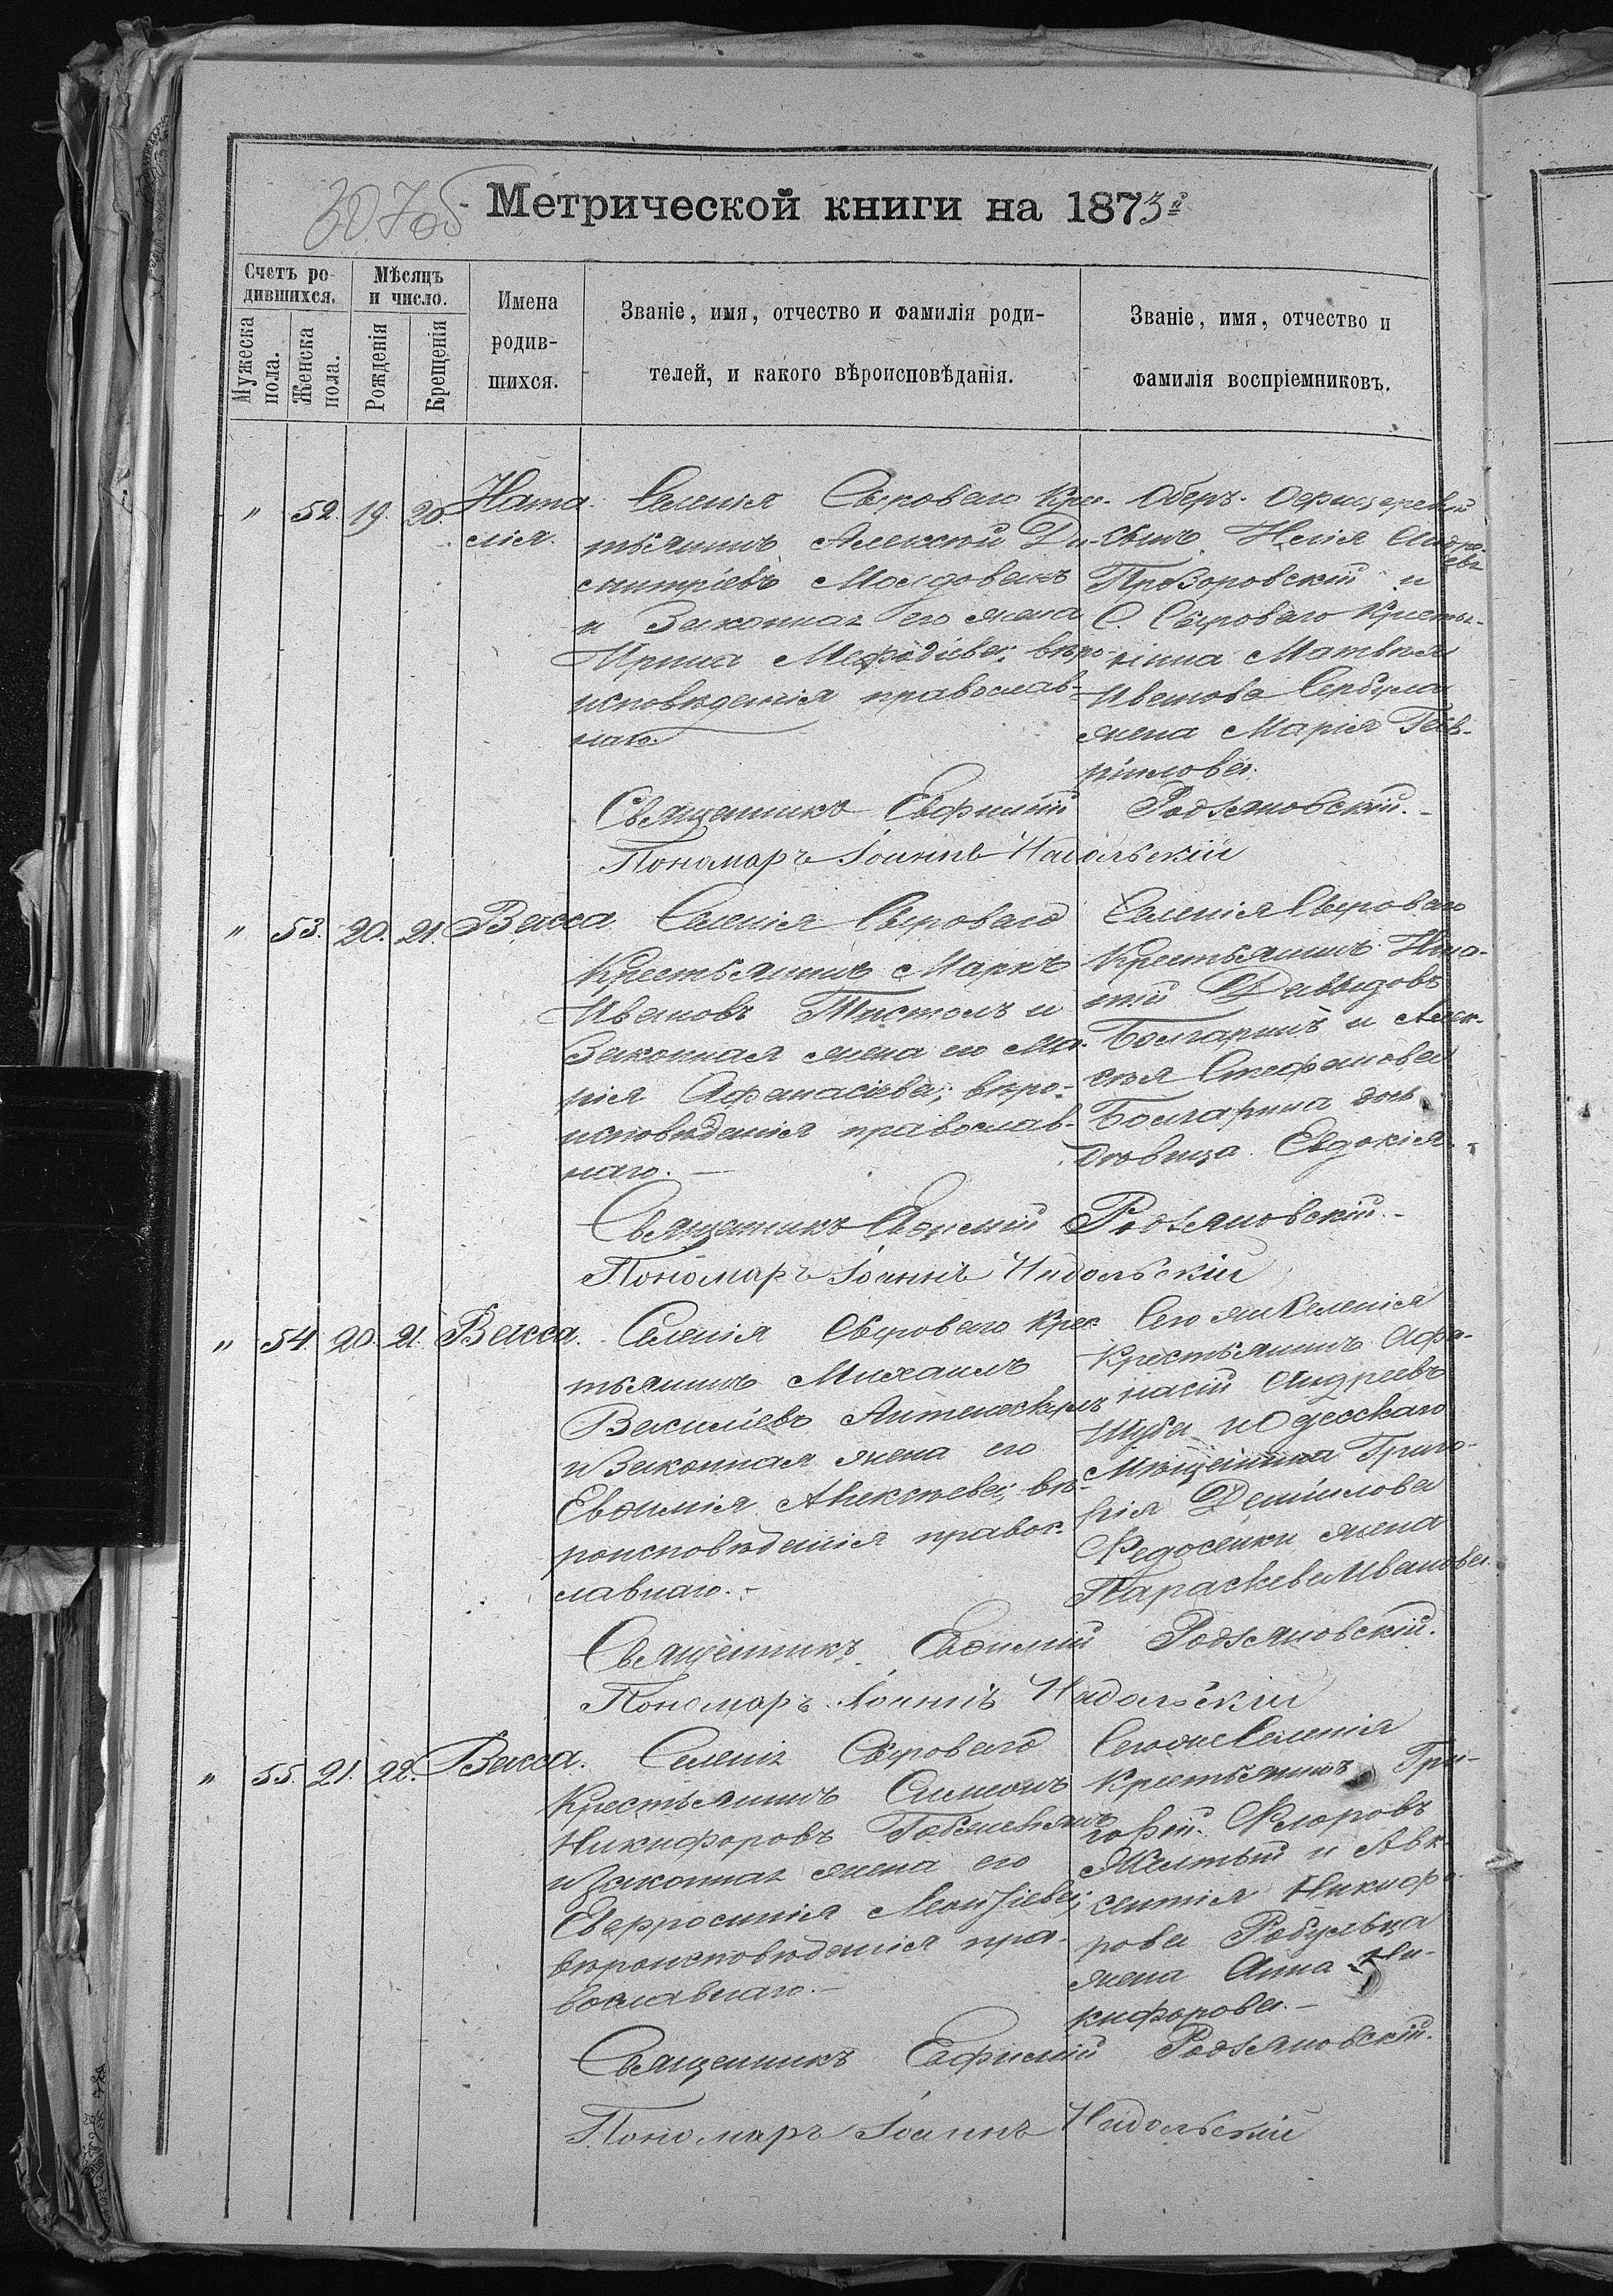 307об
Метрической книги на 1873й
Счетъ ро-
дившихся.
Мужеска
пола.
Женска
пола.
Мѣсяцъ
и число.
Рожденія
Крещенія
Имена
родив-
шихся.
Званіе, имя, отчество и фамилія роди-
телей, и какого вѣроисповѣданія.
Званіе, имя, отчество и
фамилія воспріемниковъ.
" 52. 19. 20. Ната
лія.
Селенія Сыроваго Кре-
тьянинъ Алексій Ди-
митріевъ Молдованъ
и Законная его жена
Ирина Мефодіева, вѣро-
исповѣданія православ-
наго.
Оберъ-Офицерскій
Сынъ Илія Андре-
евъ
Прозоровскій и
С. Сыроваго Кресть-
янина Матвѣя
Иванова Сербула
жена Марія Гав-
ріилова.
Священникъ Евфимій Родзяновскій.
Пономаръ Іоаннъ Надольскій
" 53. 20. 21. Васса
Селенія Сыроваго
Крестьянинъ Маркъ
Ивановъ Пистолъ и
Законная жена его Ма-
рія Афанасіева, вѣро-
исповѣданія православ-
наго.
Селенія Сыроваго
Крестьянинъ Игна-
тій Давыдовъ
Болгаринъ и Алек-
сѣя Стефанова
Болгарина дочь
дѣвица Евдокія.
Священникъ Евѳимій Родзяновскій.
Пономаръ Іоаннъ Надольскій
" 54. 20. 21. Васса.
Селенія Сыроваго Крес-
тьянинъ Михаилъ
Василіевъ
и Законная жена его
Евѳимія Алексѣева, вѣ-
роисповѣданія правос-
лавнаго.
Сего же Селенія
Крестьянинъ Афа-
насій Андреевъ
Шуба и Одесскаго
Мѣщанина Григо-
рія Даніилова
Федосенки жена
Параскева Иванова.
Священникъ Евѳимій Родзяновскій.
Пономаръ Іоаннъ Надольскій
" 55. 21. 22. Васса.
Селенія Сыроваго
Крестьянинъ Симеонъ
Никифоровъ
и Законная жена его
Евфросинія Леонтіева,
вѣроисповѣданія пра-
вославнаго.
Сего же Селенія
Крестьянинъ Гри-
горій Флоровъ
Желтый и Авк-
сентія Никифо-
рова Робульца
жена Анна Ни-
кифорова.
Священникъ Евфимій Родзяновскій.
Пономаръ Іоаннъ Надольскій